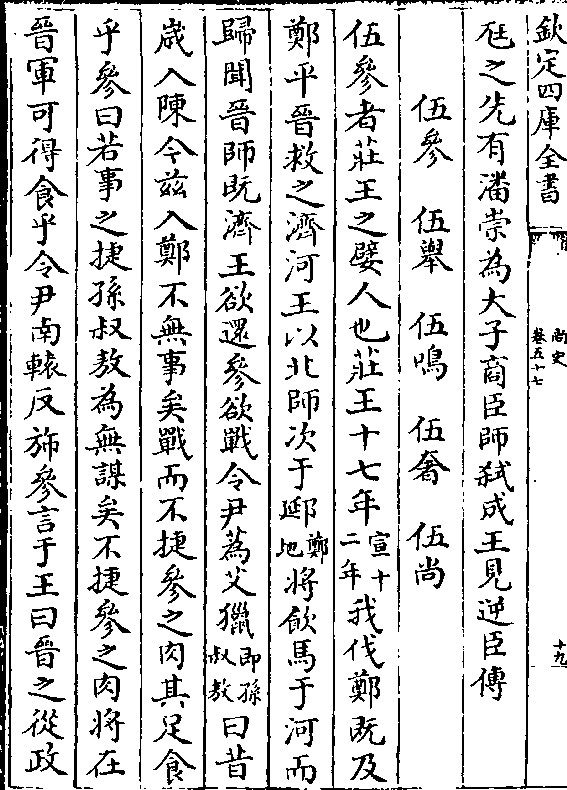 欽定四庫全書
尚史
卷五十七
十九
尫之先有潘崇為大子商臣師弑成王見逆臣傳
伍參 伍舉 伍鳴 伍奢 伍尚
伍參者莊王之嬖人也莊王十七年宣十二年我伐鄭既及
鄭平晉救之濟河王以北師次于郔鄭地將飲馬于河而
歸聞晉師既濟王欲還參欲戰令尹蒍艾獵即孫叔敖曰昔
歲入陳今茲入鄭不無事矣戰而不捷參之肉其足食
乎參曰若事之捷孫叔敖為無謀矣不捷參之肉將在
晉軍可得食乎令尹南轅反斾參言于王曰晉之從政